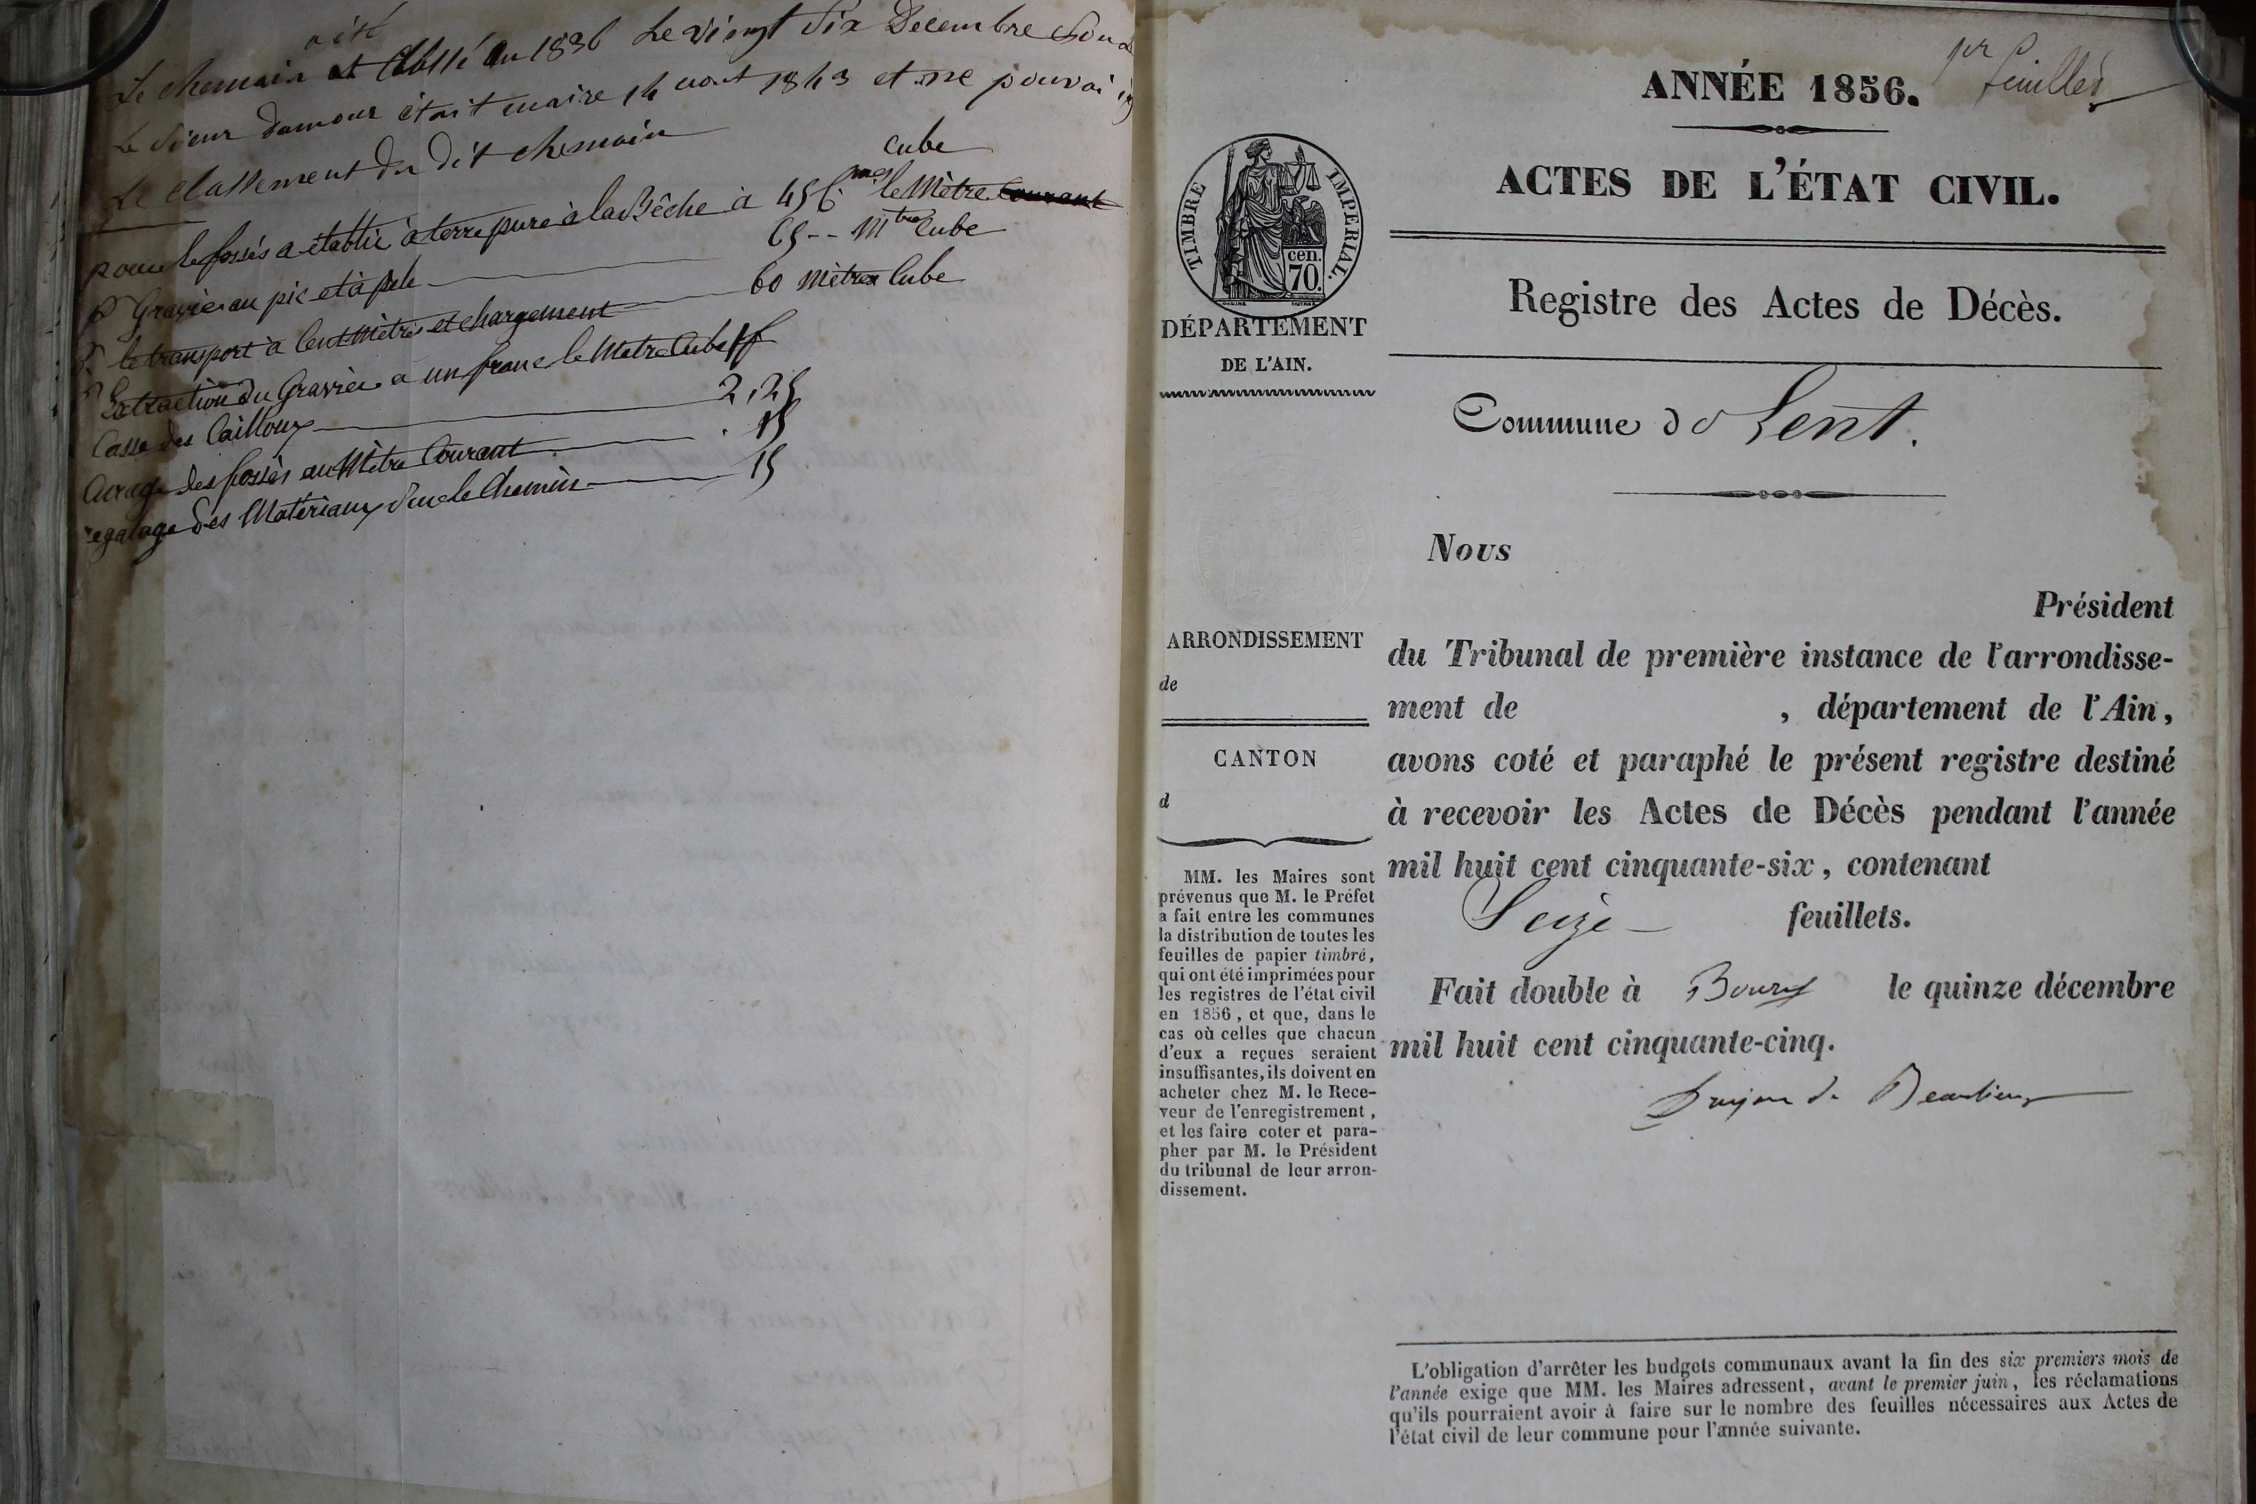 a été
Le chemain et Classé en 1836 Le vingt Six Decembre
Le Sieur damour était maire 14 aout 1843 et ne pouvai
Le classement du dit chemain
cube
pour le fossés a établir à terre pure à la Bêche à 45 c. le Mètre Courant
Gravier au pic et à pele 65 -- Mtre Cube
le transport à Cent Mètres et chargement 60 Mètre Cube
Extraction du Gravier a un franc le Metre Cube 1f
Casse des Cailloux 2,25
Curage des fossés au Mètre Courant . 15
regalage des Materiaux sur le Chemin 15
1er feuillet
ANNÉE 1856.
ACTES DE L'ÉTAT CIVIL.
TIMBRE IMPERIAL.
cen.
70.
DÉPARTEMENT
DE L'AIN.
Registre des Actes de Décès.
Commune de Lent.
Nous
Président
du Tribunal de première instance de l'arrondisse-
ment de , département de l'Ain,
avons coté et paraphé le présent registre destiné
à recevoir les Actes de Décès pendant l'année
mil huit cent cinquante-six, contenant
Seize feuillets.
Fait double à Bourg le quinze décembre
mil huit cent cinquante-cinq.
Dujon de Beaulieu
ARRONDISSEMENT
de
CANTON
d
MM. les Maires sont
prévenus que M. le Préfet
a fait entre les communes
la distribution de toutes les
feuilles de papier timbré,
qui ont été imprimées pour
les registres de l'état civil
en 1856, et que, dans le
cas où celles que chacun
d'eux a reçues seraient
insuffisantes, ils doivent en
acheter chez M. le Rece-
veur de l'enregistrement,
et les faire coter et para-
pher par M. le Président
du tribunal de leur arron-
dissement.
L'obligation d'arrêter les budgets communaux avant la fin des six premiers mois de
l'année exige que MM. les Maires adressent, avant le premier juin, les réclamations
qu'ils pourraient avoir à faire sur le nombre des feuilles nécessaires aux Actes de
l'état civil de leur commune pour l'année suivante.